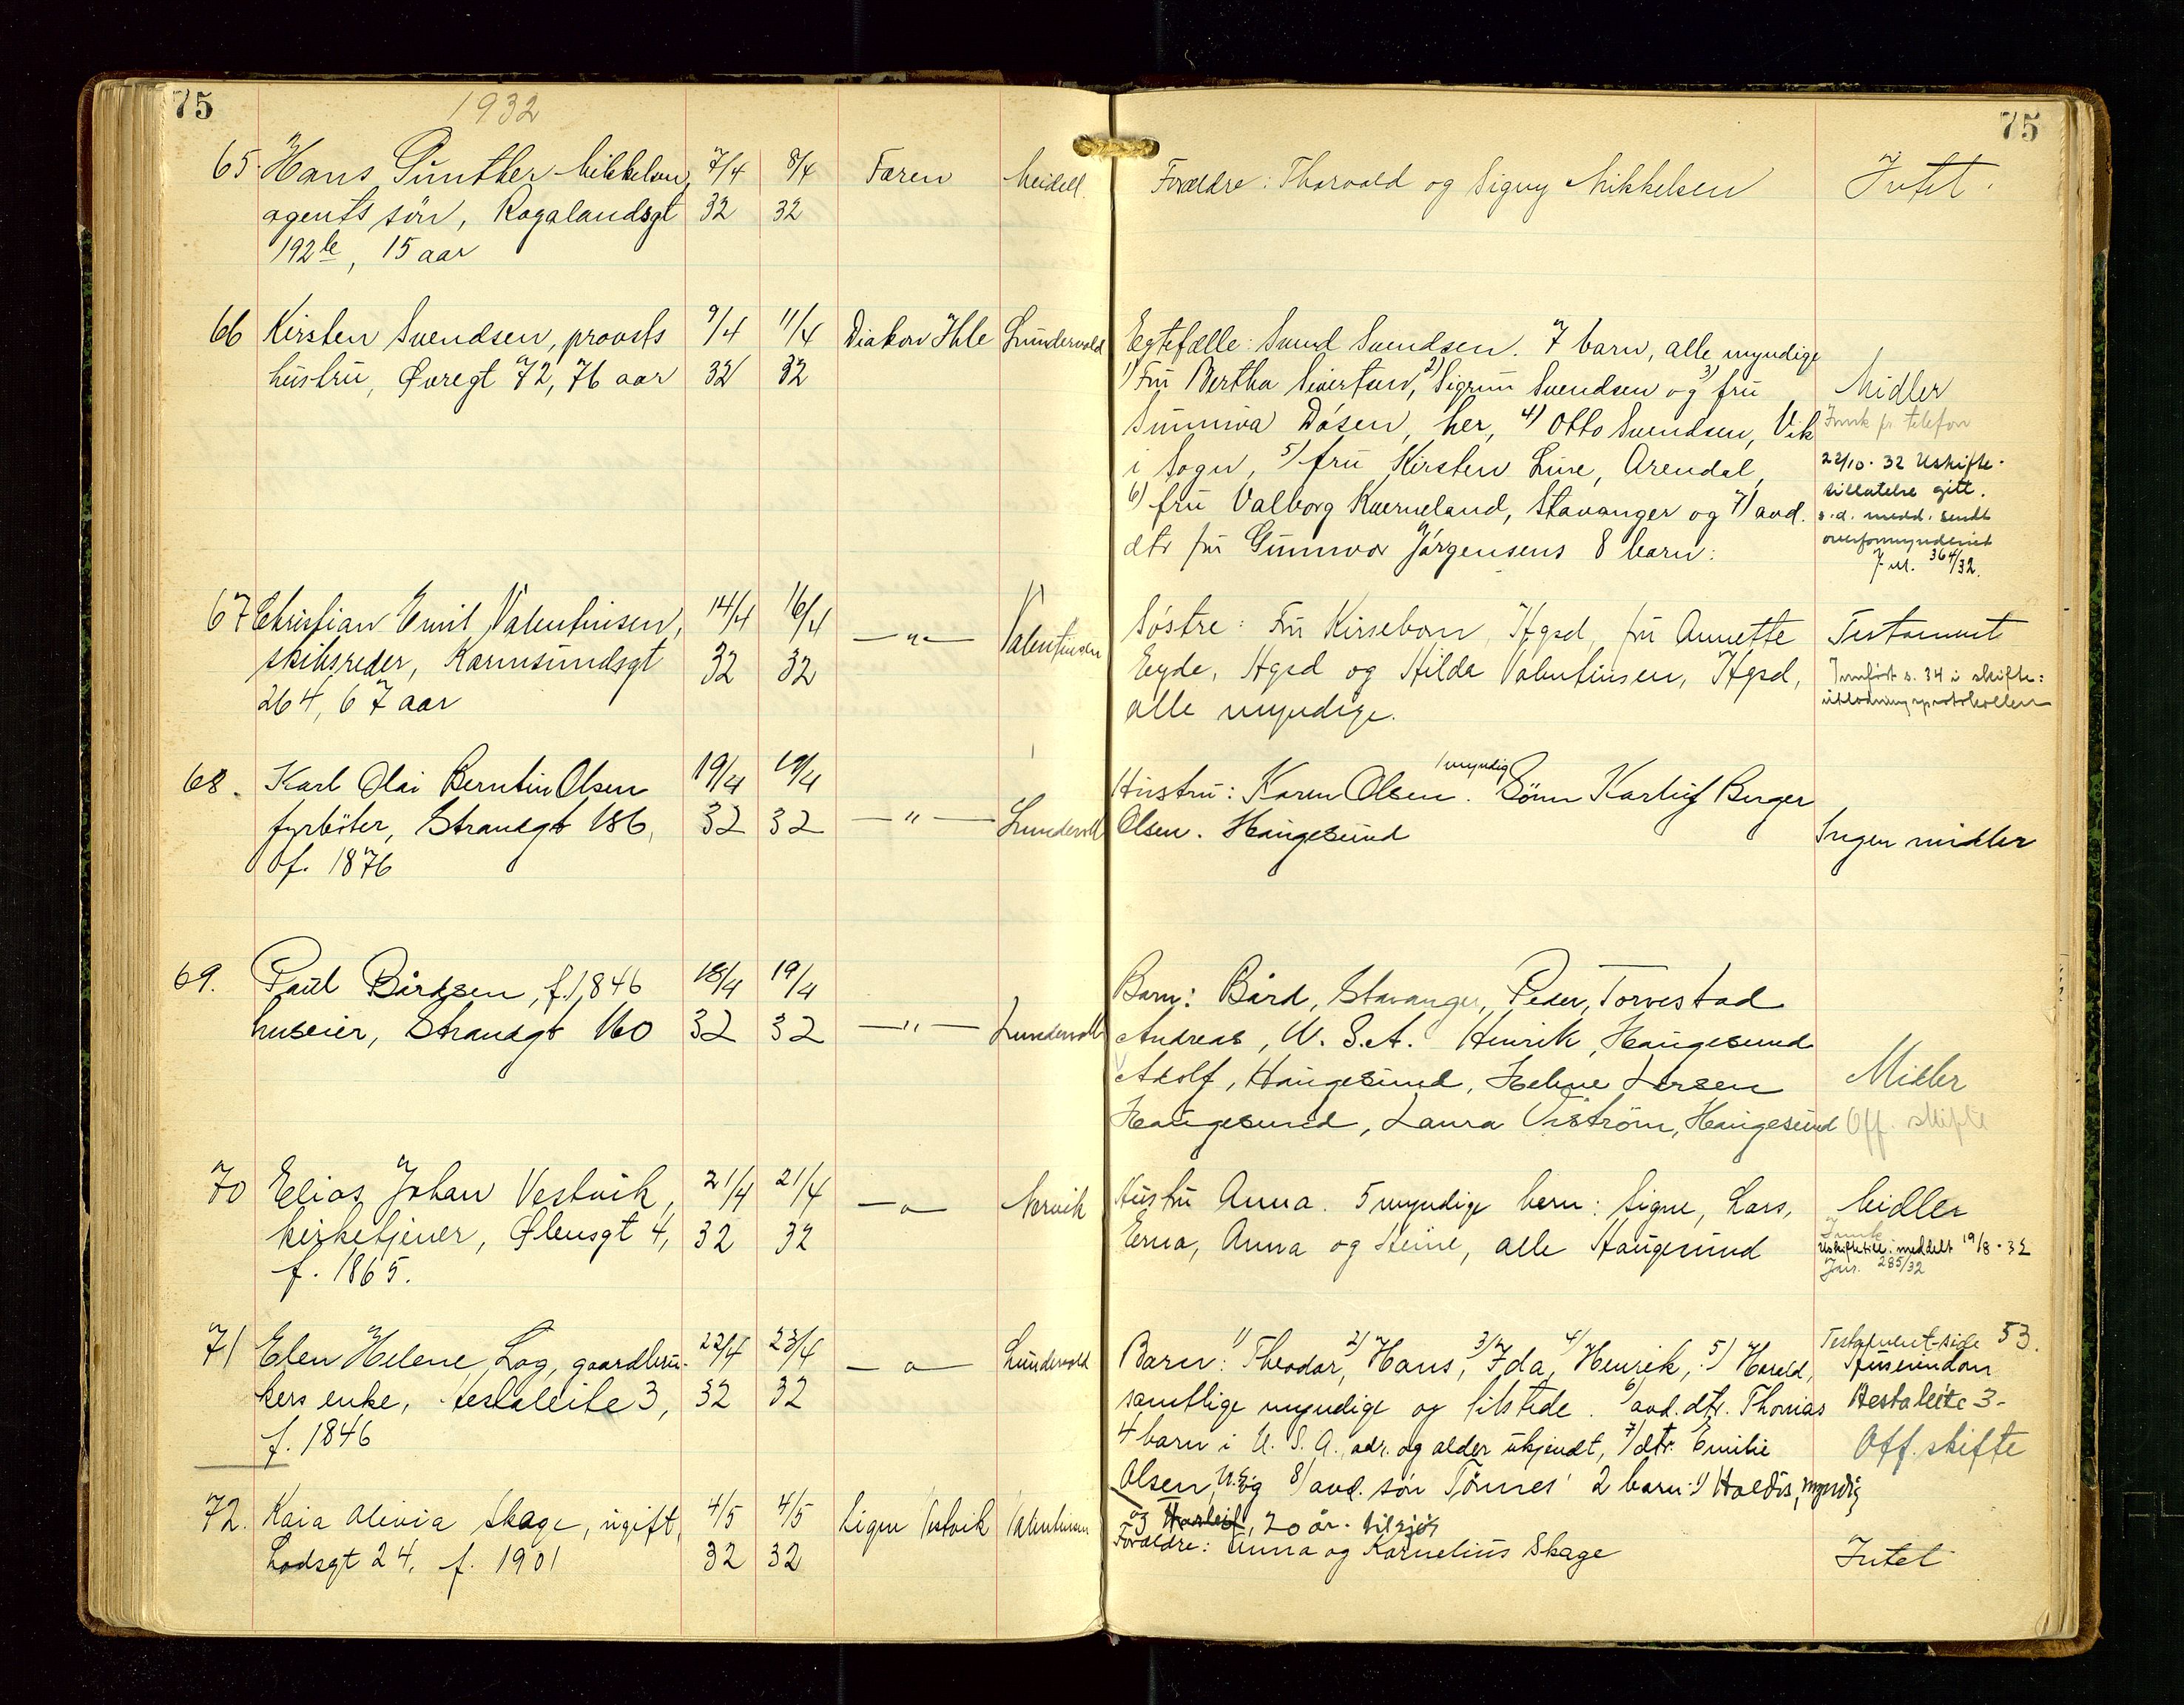 75
1932
75
65. Hans Günther Mikkelsen, 7/4 8/4 Faren Meidell. Forældre: Thorvald og Signy Mikkelsen Intet.
agents søn, Rogalandsgt 32 32
192 b, 15 aar
66 Kirsten Svendsen, provsts 9/4 11/4 Diakon Ihle Lundervold Egtefælle: Svend Svendsen. 7 barn, alle myndige
hustru, Øvregt 72, 76 aar 32 32 1) Fru Bertha Sivertsen, 2) Sigrun Svendsen og 3) fru Midler
Sunniva Døsen, her, 4) Otto Svendsen, Vik pr telefon
i Sogn, 5) fru Kirsten Lure, Arendal, 22/10-32 Uskifte-
6) fru Valborg Kverneland, Stavanger og 7) avd. tillatelse gitt.
dtr fru Gunnvor Jørgensens 8 barn: s.d. medd. sendt
overformynderiet
J.nr. 364/32.
67 Christian Emil Valentinsen, 14/4 16/4 — " — Valentinsen Søstre: Fru Kirsebom, Hgsd, fru Annette Testament
skibsreder, Karmsundsgt 32 32 Eyde, Hgsd og Hilda Valentinsen, Hgsd, Innført s. 34 i skifte-
264, 67 aar alle myndige. utlodningsprotokollen
68. Karl Olai Berntin Olsen 19/4 19/4 Hustru: Karen Olsen. 1 myndig Sønn Karluf Berger
fyrbøter, Strandgt 186, 32 32 — " — Lundervold Olsen. Haugesund Ingen midler
f. 1876
69. Paul Bårdsen, f. 1846 18/4 19/4 Barn: Bård, Stavanger, Peder, Torvestad
huseier, Strandgt 160 32 32 — " — Lundervold Andreas, U.S.A. Henrik, Haugesund
Adolf, Haugesund, Helene Larsen Midler
Haugesund, Laura Viström, Haugesund Off. skifte
70 Elias Johan Vestvik, 21/4 21/4 — " — Norvik Hustru Anna. 5 myndige barn: Signe, Lars, Midler
kirketjener, Ølensgt 4, 32 32 Erna, Anna og Steine, alle Haugesund Uskiftetill. meddelt 19/8-32
f. 1865. Jnr. 285/32
71 Elen Helene Log, gaardbru- 22/4 23/4 — " — Lundervold Barn: 1) Theodor, 2) Hans, 3) Ida, 4) Henrik, 5) Harald, Testament-side 53.
kers enke, Hestaleite 3, 32 32 samtlige myndige og tilstede. 6) avd. dtr. Thomas Huseiendom
f. 1846 4 barn i U.S.A., adr. og alder ukjendt, 7) dtr. Emilie Hestaleite 3-
Olsen, og 8) avd. søn Tönnes' 2 barn: 1) Haldis, myndig Off. skifte
og Harleif, 20 år. tilsjøs
72. Kaia Olivia Skage, ugift, 4/5 4/5 Signe Vestvik Valentinsen Forældre: Anna og Kornelius Skage Intet
Lodsgt 24, f. 1901 32 32